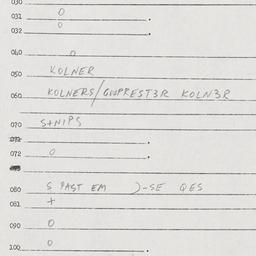 030
031 O .
032 O .
040 O
050 KOLNER
060 KOLNERS/ KOLN3R
070 S+NIPS
071 .
072 O .
080 S PAST EM )-SE QES
081 +
090 O
100 O .